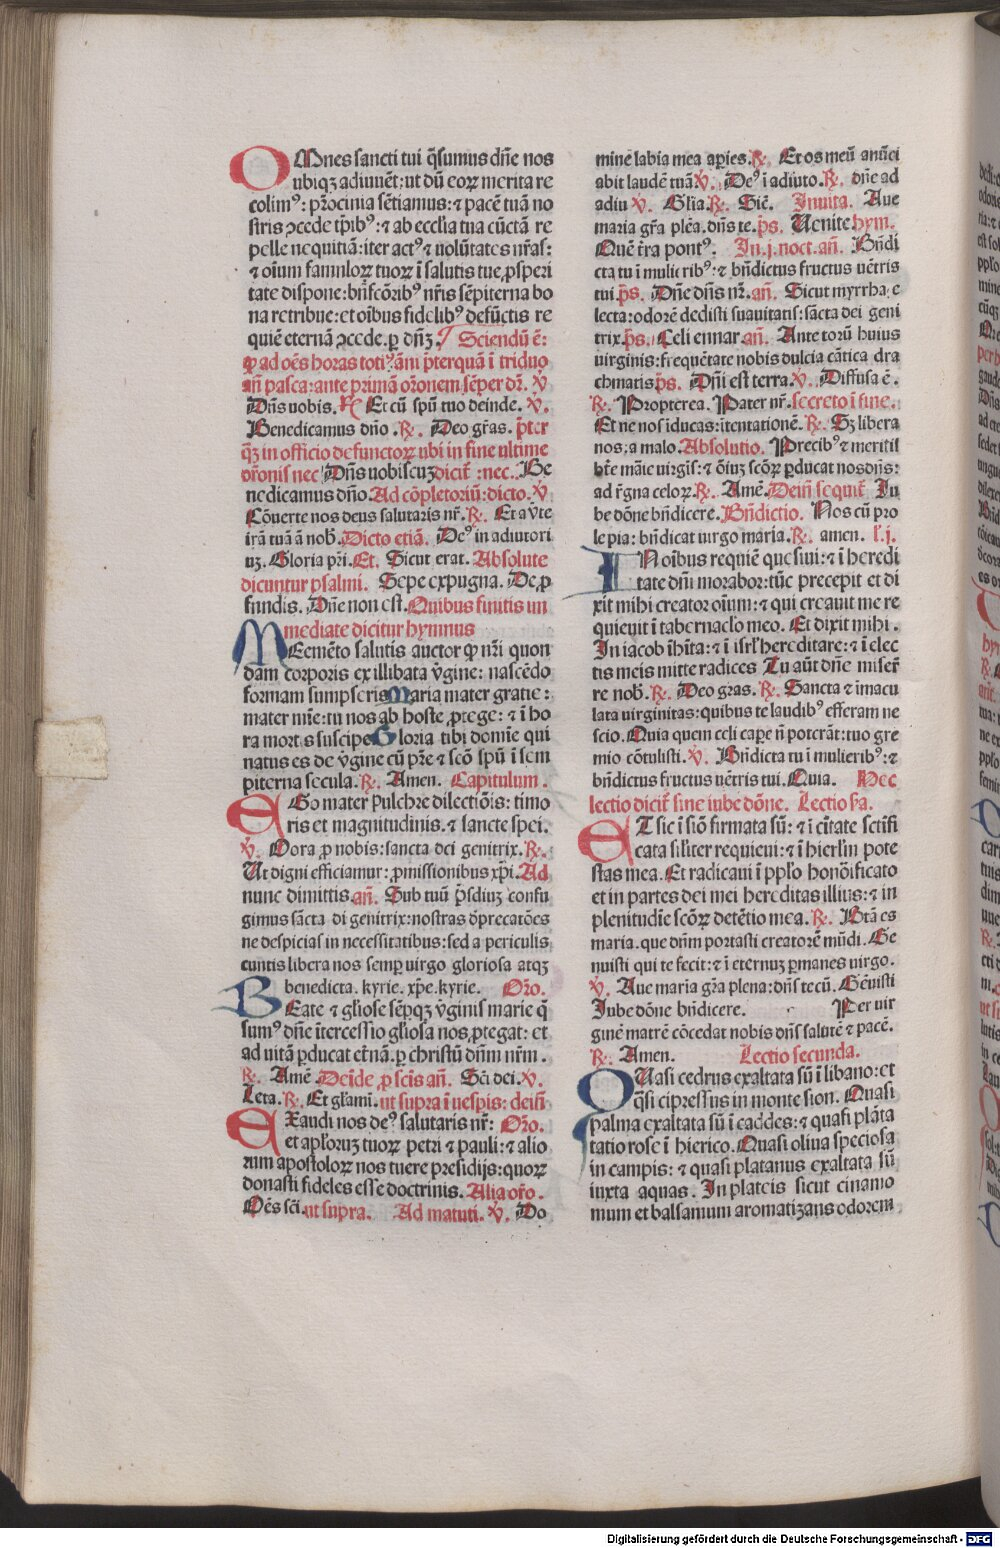 OMnes sancti tui q̄sumus dn̄e nos
ubiqʒ adiuuēt: ut dū eoꝝ merita re
colimꝰ: pr̄ocinia sētiamus: ⁊ pacē tuā no
stris ꝯcede tp̄ibꝰ: ⁊ ab ecclīa tua cūctā re
pelle nequitiā: iter actꝰ ⁊ uolūtates nr̄as:
⁊ oīum famuloꝝ tuoꝝ ī salutis tue ꝓsperi
tate dispone: bn̄fcōribꝰ nr̄is sēpiterna bo
na retribue: et oībus fidelibꝰ defūctis re
quiē eternā ꝯcede. ꝑ dn̄ʒ. Sciendū ē:
ꝙ ad oēs horas totiꝰ āni p̄terquā ī triduo
an̄ pasca: ante primā or̄onem sēper dr̄. ℣
Dn̄s uobis. ℟ Et cū spū tuo deinde. ℣.
Benedicamus dn̄o. ℟. Deo gr̄as. p̄ter
qʒ in officio defunctoꝝ ubi in fine ultime
or̄onis nec Dn̄s uobiscuʒ dicit̄: nec. Be
nedicamus dn̄o. Ad cōpletoriū: dicto. ℣
Cōuerte nos deus salutaris nr̄. ℟. Et av̄te
irā tuā ā nob̄. Dicto etiā. Deꝰ in adiutori
uʒ. Gloria pr̄i. Et. Sicut erat. Absolute
dicuntur psalmi. Sepe expugna. De ꝓ
fundis. Dn̄e non est. Quibus finitis un
mediate dicitur hymnus
MEemēto salutis auctor ꝙ nr̄i quon
dam corporis ex illibata v̄gine: nascēdo
formam sumpseris Maria mater gratie:
mater mīe: tu nos ab hoste ꝓtege: ⁊ ī ho
ra mortis suscipe Gloria tibi domīe qui
natus es de v̄gine cū pr̄e ⁊ scō spū ī sem
piterna secula. ℟. Amen. Capitulum.
EGo mater pulchre dilectiōis: timo
ris et magnitudinis. ⁊ sancte spei.
℣. Oora ꝓ nobis: sancta dei genitrix. ℟.
Ut digni efficiamur: ꝓmissionibus xp̄i. Ad
nunc dimittis. an̄. Sub tuū p̄sdiuʒ confu
gimus sācta di genitrix: nostras dp̄recatōes
ne despicias in necessitatibus: sed a periculis
cuntis libera nos semꝑ uirgo gloriosa atqʒ
benedicta. kyrie. xp̄e. kyrie. Or̄o.
BEate ⁊ gl̄iose sēpqʒ v̄ginis marie q̄
sumꝰ dn̄e ītercessio gl̄iosa nos ꝓtegat: et
ad uitā ꝑducat et̄nā. ꝑ christū dn̄m nr̄m.
℟. Amē Deīde ꝓ scīs an̄. Scī dei. ℣.
Leta. ℟. Et gl̄ami. ut supra ī uespis: deīn̄
EXaudi nos deꝰ salutaris nr̄: Or̄o.
et apl̄oruʒ tuoꝝ petri ⁊ pauli: ⁊ alio
rum apostoloꝝ nos tuere presidijs: quoꝝ
donasti fideles esse doctrinis. Alia or̄o.
Oēs scī. ut supra. Ad matuti. ℣. Do
minē labia mea aꝑies. ℟. Et os meū anūci
abit laudē tuā ℣. Deꝰ ī adiuto. ℟. dn̄e ad
adiu ℣. Gl̄ia. ℟. Sic̄. Inuita. Aue
maria gr̄a plēa. dn̄s te. p̄s. Uenite hym.
Quē tr̄a pontꝰ: In. j. noct. an̄. Bn̄di
cta tu ī mulieribꝰ: ⁊ bn̄dictus fructus uētris
tui. p̄s. Dn̄e dn̄s nr̄. an̄. Sicut myrrha: e
lecta: odorē dedisti suauitatis: sācta dei geni
trix. p̄s. Celi ennar. an̄. Ante torū huius
uirginis: freq̄uētate nobis dulcia cātica dra
chmatis p̄s. Dn̄i est terra. ℣. Diffusa ē.
℟. Propterea. Pater nr̄. secreto ī fine.
Et ne nos īducas: ītentationē. ℟. Sʒ libera
nos: a malo. Absolutio. Precibꝰ ⁊ meritis
bt̄e māie uirgīs: ⁊ ōiuʒ scōꝝ ꝑducat nos dn̄s:
ad rēgna celoꝝ. ℟. Amē. Dein̄ sequit̄ Iu
be dōne bn̄dicere. Bn̄dictio. Nos cū pro
le pia: bn̄dicat uirgo maria. ℟. amen. l̄. j.
IN oībus requiē quesiui: ⁊ ī heredi
tate dn̄i morabor: tūc precepit et di
xit mihi creator oīum: ⁊ qui creauit me re
quieuit ī tabernacl̄o meo. Et dixit mihi.
In iacob īhīta: ⁊ ī isrl̄ hereditare: ⁊ ī elec
tis meis mitte radices Tu aūt dn̄e miser̄
re nob̄. ℟. Deo gras. ℟. Sancta ⁊ īmacu
lata uirginitas: quibus te laudibꝰ efferam ne
scio. Quia quem celi caꝑe n̄ poterāt: tuo gre
mio cōtulisti. ℣. Bn̄dicta tu ī mulieribꝰ: ⁊
bn̄dictus fructus uētris tui. Quia. Hec
lectio dicit̄ sine iube dōne. Lectio p̄a.
ET sic ī siō firmata sū: ⁊ ī cītate sctīfi
cata sil̄iter requieui: ⁊ ī hierl̄m pote
stas mea. Et radicaui ī ppl̄o honōificato
et in partes dei mei hereditas illius: ⁊ in
plenitudīe scōꝝ detētio mea. ℟. Btā es
maria. que dn̄m portasti creatorē mūdi. Ge
nuisti qui te fecit: ⁊ ī eternuʒ ꝑmanes uirgo.
℣. Aue maria gr̄a plena: dn̄s tecū. Gēuisti
Iube dōne bn̄dicere. Per uir
ginē matrē cōcedat nobis dn̄s salutē ⁊ pacē.
℟. Amen. Lectio secunda.
QUasi cedrus exaltata sū ī libano: et
q̄si cipressus in monte sion. Quasi
palma exaltata sū ī caddes: ⁊ quasi plāta
tatio rose ī hierico. Quasi oliua speciosa
in campis: ⁊ quasi platanus exaltata sū
iuxta aquas. In plateis sicut cinamo
mum et balsamum aromatiʒans odorem
Digitalisierung gefördert durch die Deutsche Forschungsgemeinschaft - DFG